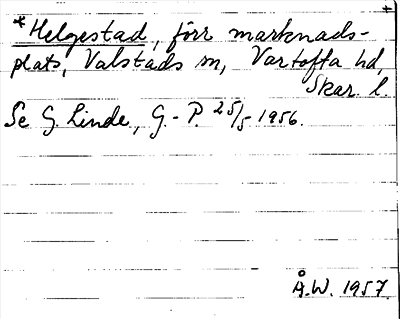 *Helgestad, förr marknads-
plats, Valstads sn, Vartofta hd,
Skar. l.
Se G. Linde, G.-P. 25/5 1956.
Å.W. 1957.